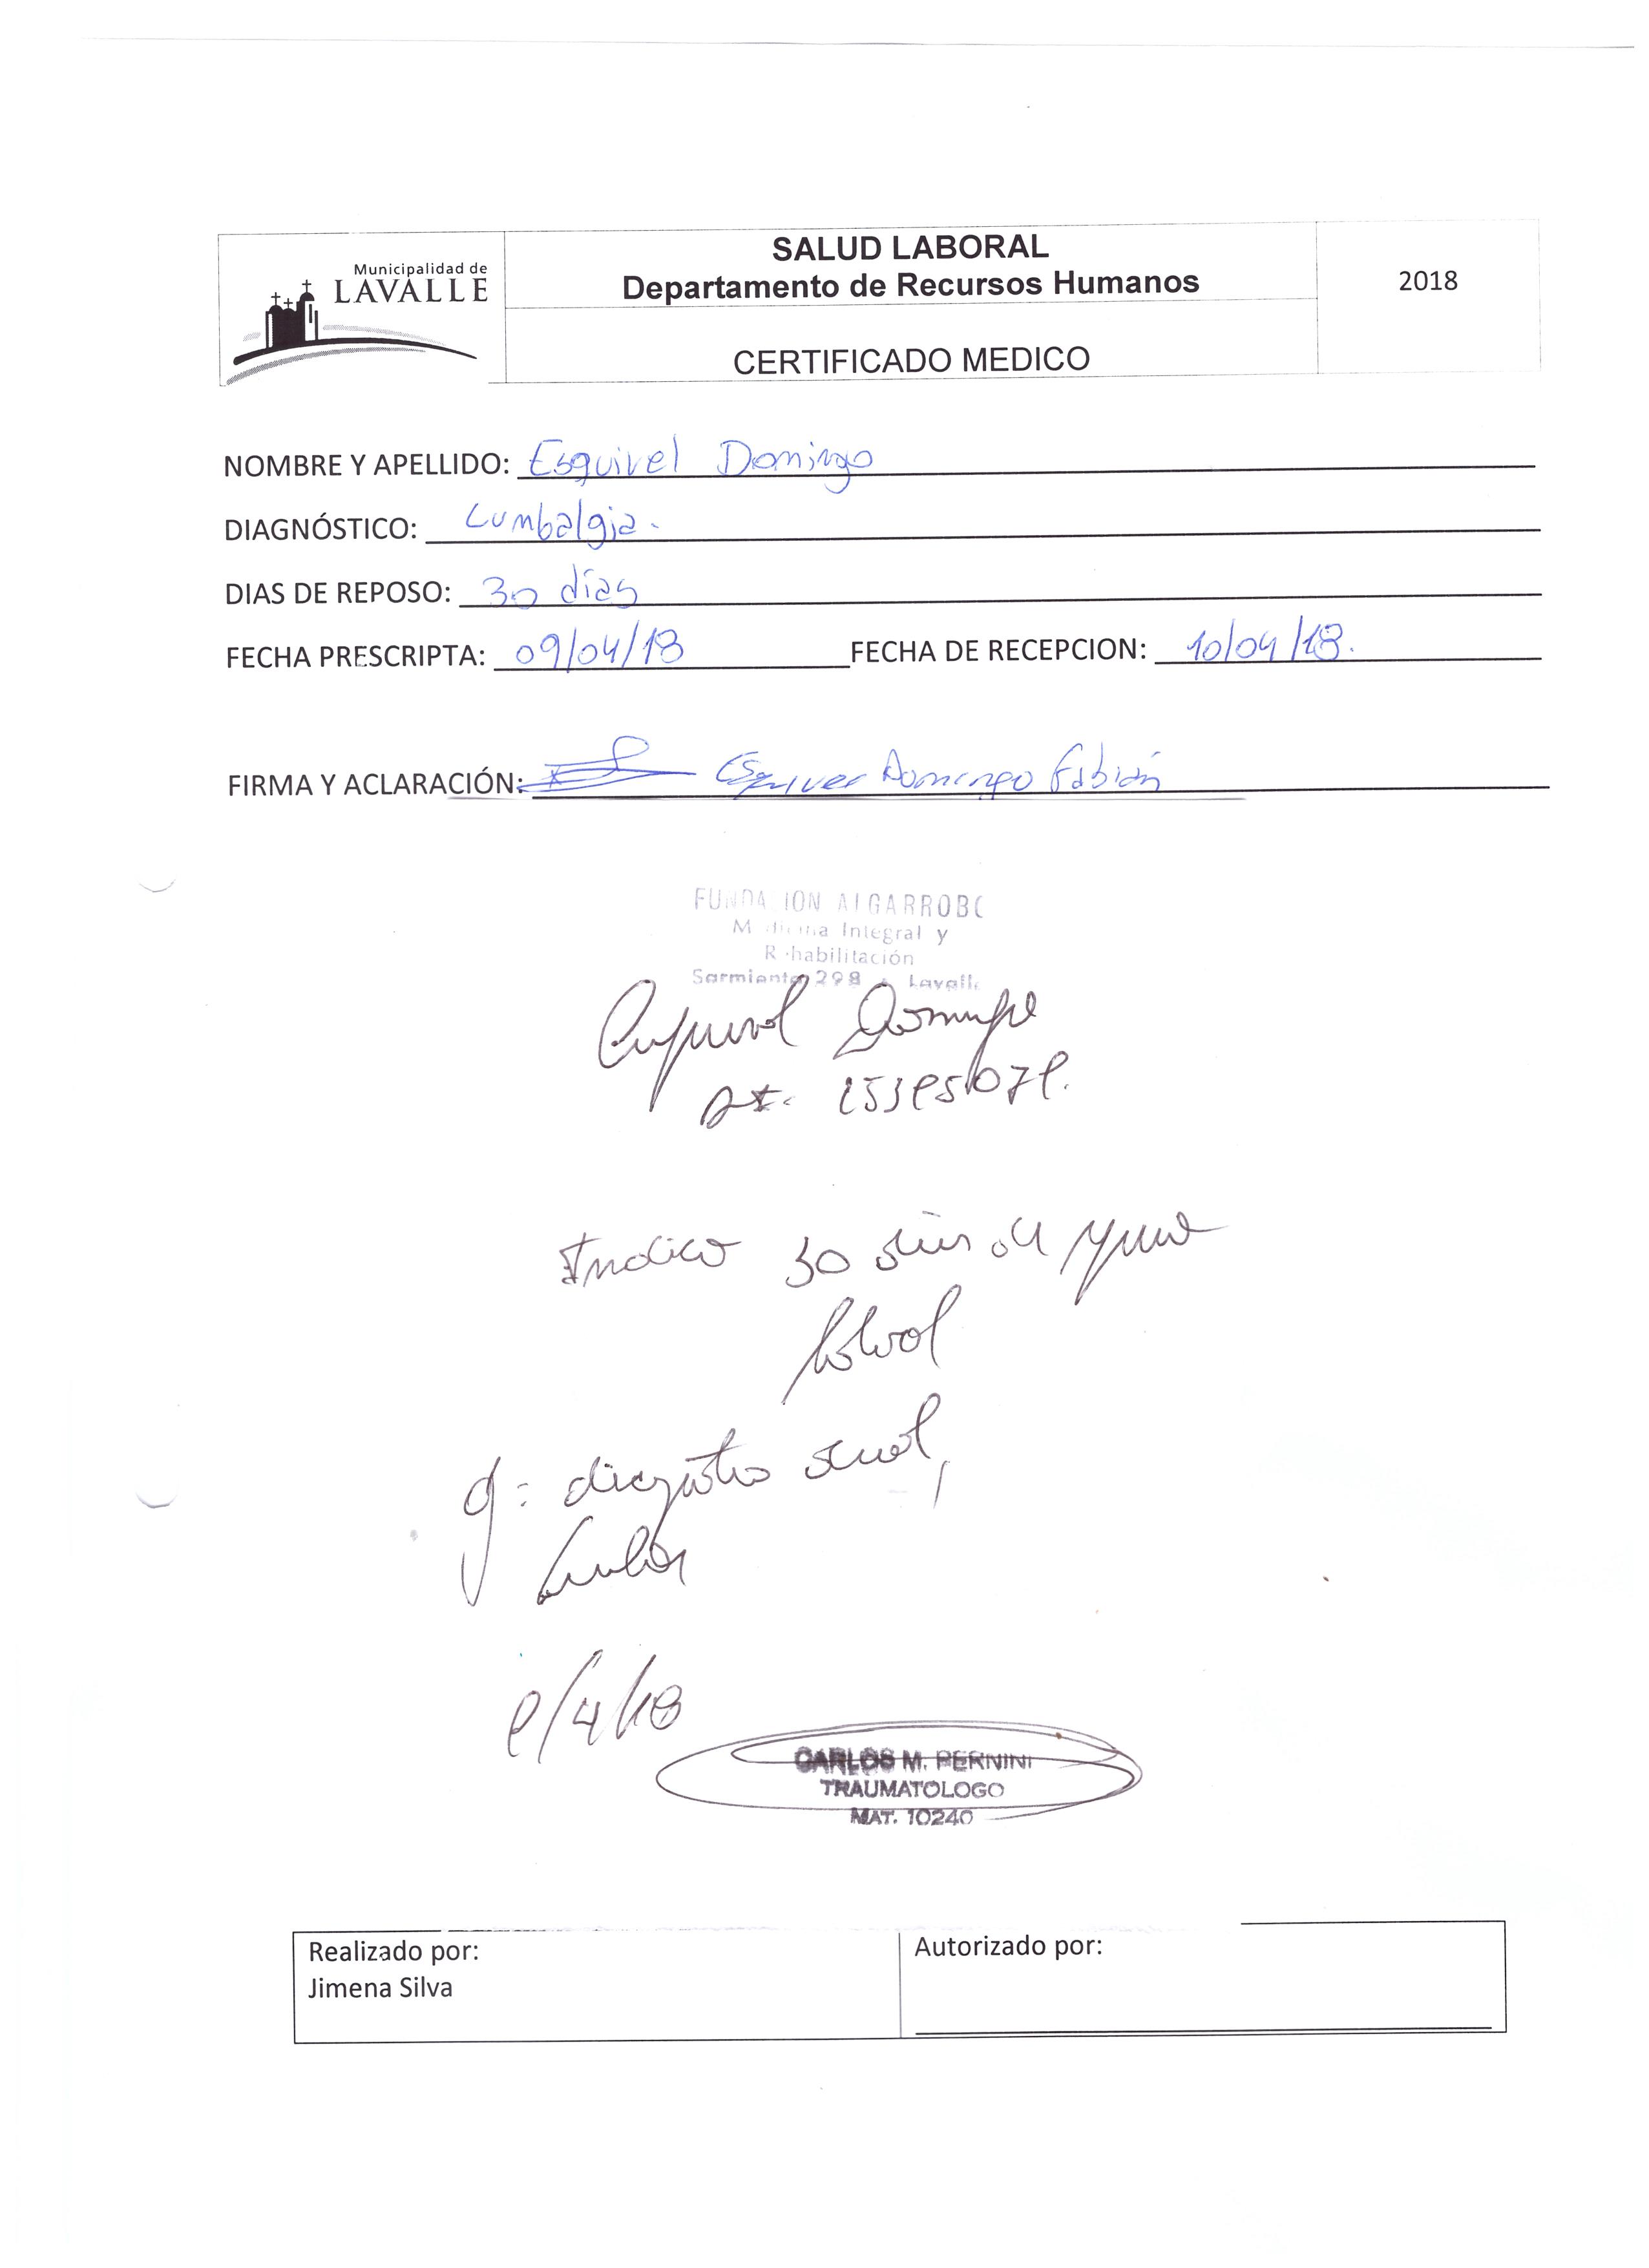 Municipalidad de
LAVALLE
SALUD LABORAL
Departamento de Recursos Humanos
2018
CERTIFICADO MEDICO
NOMBRE Y APELLIDO: Esquivel Domingo
DIAGNÓSTICO: Lumbalgia.
DIAS DE REPOSO: 30 días
FECHA PRESCRIPTA: 09/04/18 FECHA DE RECEPCION: 10/04/18.
FIRMA Y ACLARACIÓN: Esquivel Domingo Fabián
FUNDA ION ALGARROBO
Medicina Integral y
Rehabilitación
Sarmiento 298 Lavalle
Esquivel Domingo
Indico 30 días de
/4/18
CARLOS M. PERNINI
TRAUMATOLOGO
MAT. 10240
Realizado por:
Jimena Silva
Autorizado por: